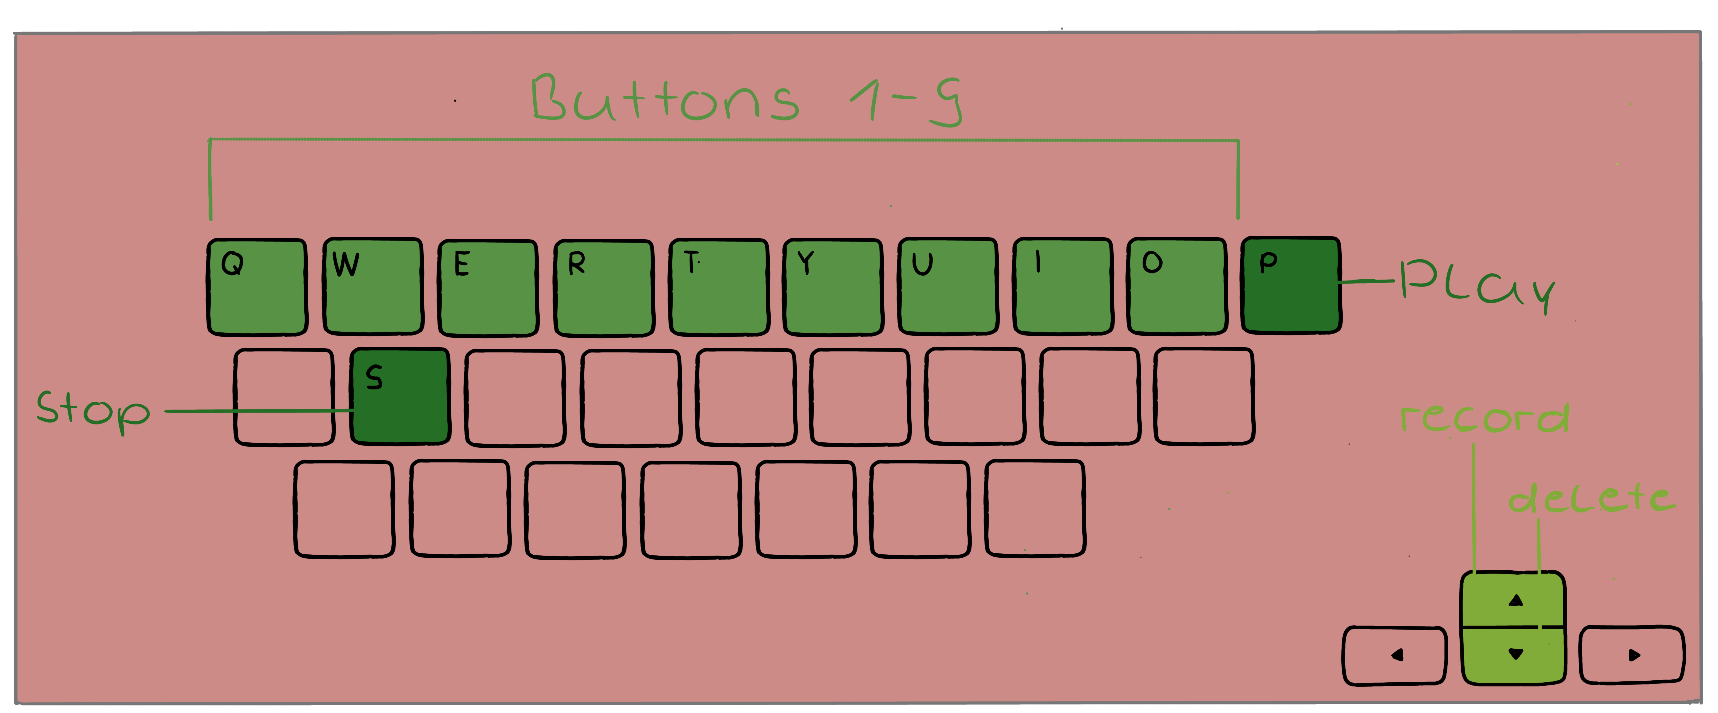 Buttons 1-9
Q W E R T Y U I O P
Play
S
Stop
record
delete